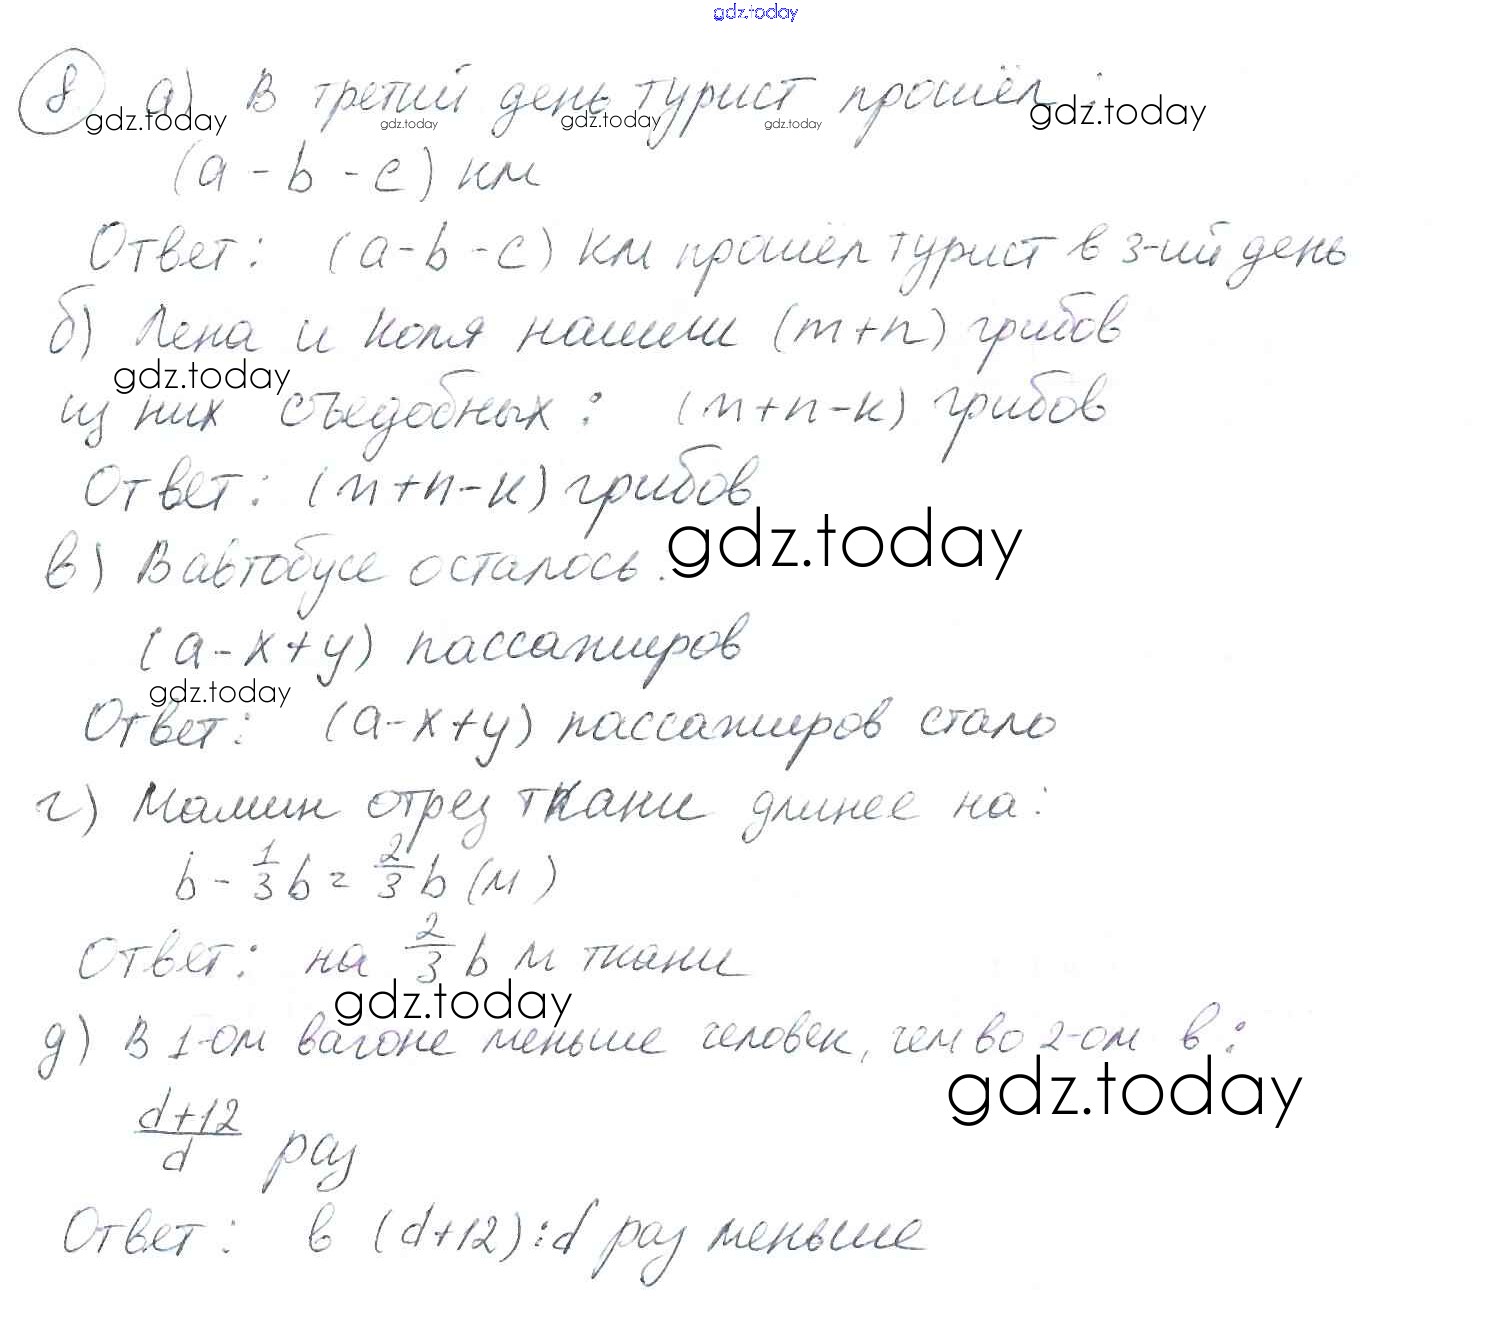 gdz.today
8 а) В третий день турист прошёл:
gdz.today gdz.today gdz.today gdz.today gdz.today
(a - b - c) км
Ответ: (a - b - c) км прошёл турист в 3-ий день
б) Лена и Коля нашли (m + n) грибов
gdz.today
из них съедобных: (m + n - к) грибов
Ответ: (m + n - к) грибов
gdz.today
в) В автобусе осталось:
(a - x + y) пассажиров
gdz.today
Ответ: (a - x + y) пассажиров стало
г) Мамин отрез ткани длинее на:
b - 1/3 b = 2/3 b (м)
Ответ: на 2/3 b м ткани
gdz.today
д) В 1-ом вагоне меньше человек, чем во 2-ом в:
gdz.today
d+12/d раз
Ответ: в (d+12):d раз меньше